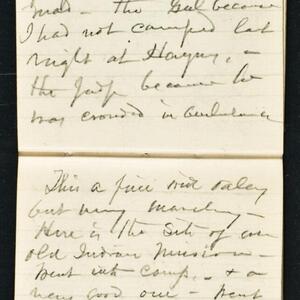 mad - the Gel because
I had not camped last
night at Hayes, -
the Judge because he
was crowded in ambulance
This a fine wide valley
but very marshy -
Here is the site of an
old Indian Mission -
Went into camp, + a
very good one - Went